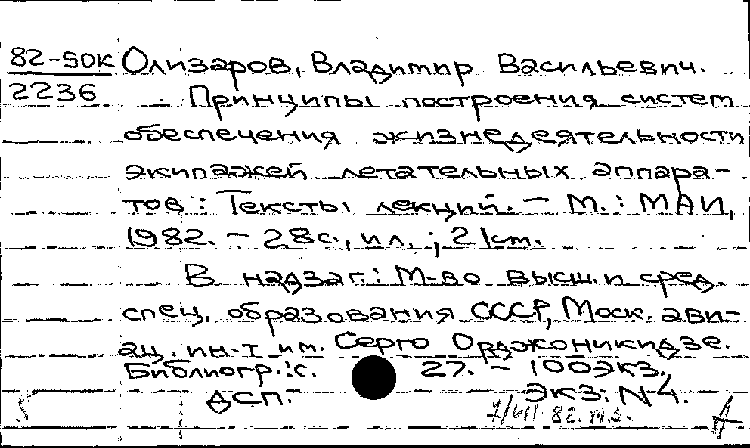 82-50К Олизаров, Владимир Васильевич.
2236 Принципы построения систем
обеспечения жизнедеятельности
экипажей летательных аппара-
тов: Тексты лекций. – М.: МАИ,
1982. – 28с., ил.; 21см.
В надзаг.: М-во высш. и сред.
спец. образования СССР, Моск. ави-
ац. ин-т им. Серго Орджоникидзе.
Библиогр.: с. 27. – 100экз.,
ДСП. экз: N4.
82.